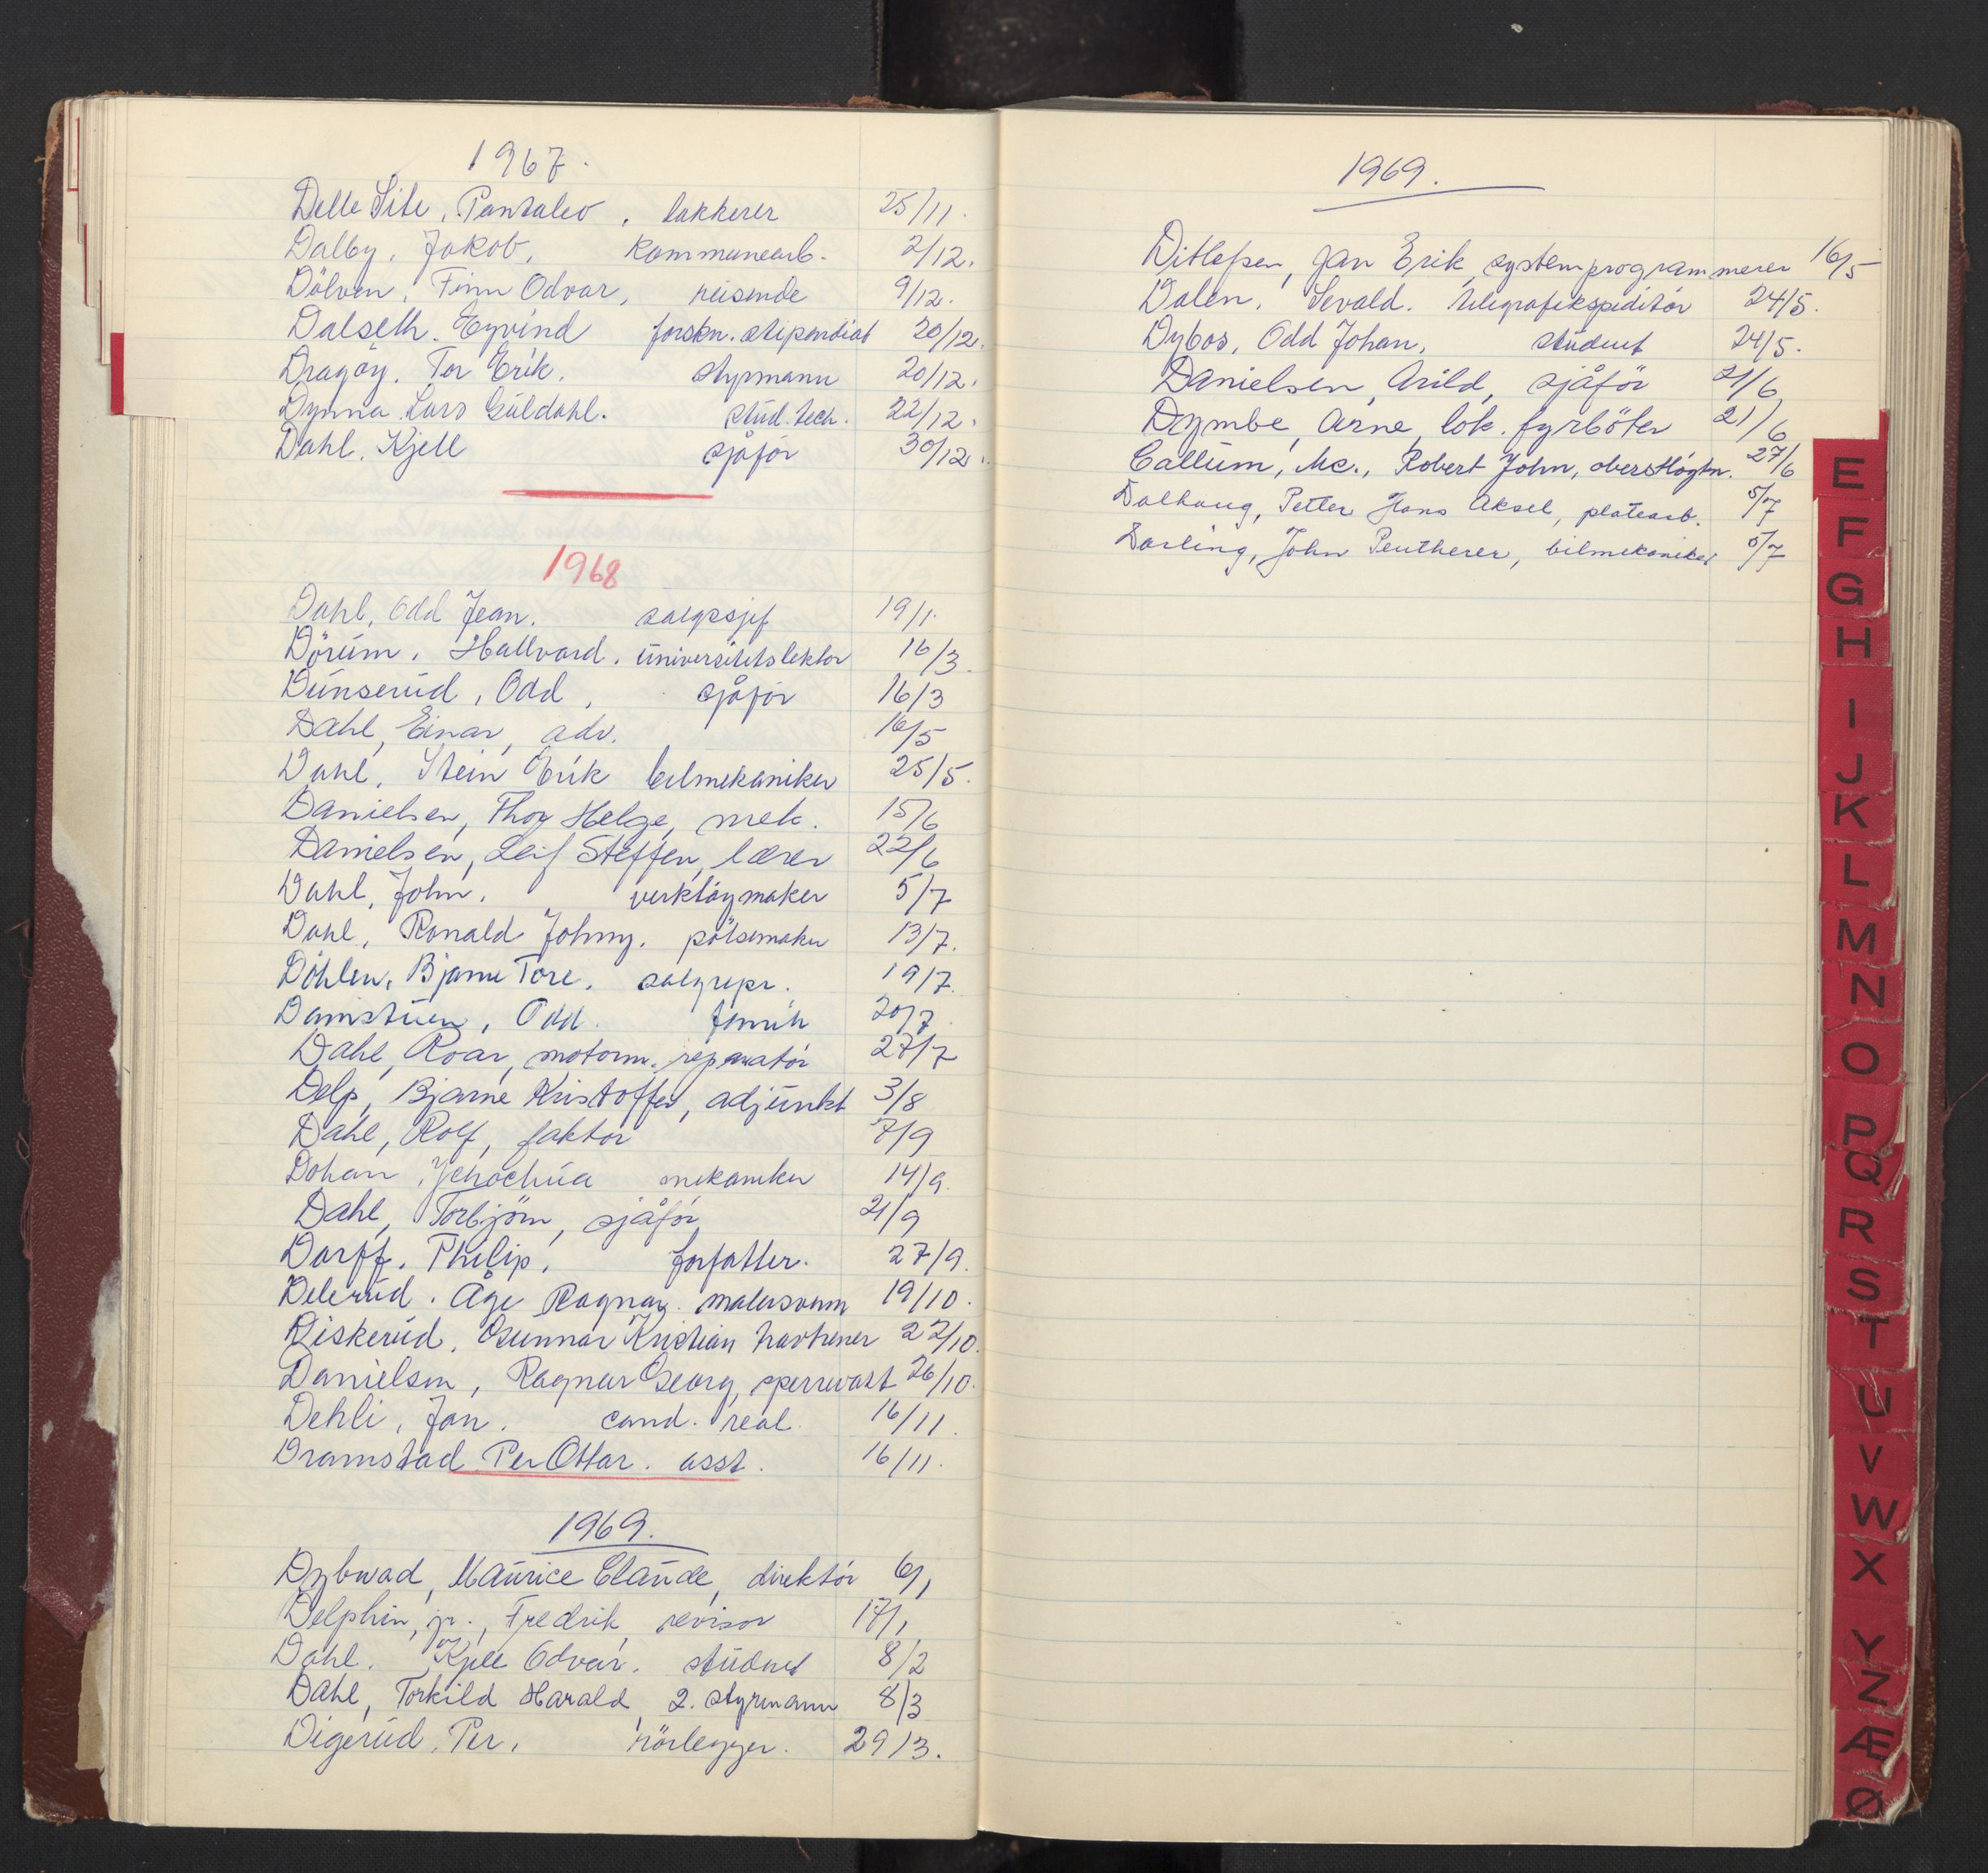 1967.
Delle Site, Pantaleo, lakkerer 25/11.
Dalby, Jakob, kommunearb. 2/12.
Dölven, Finn Odvar, reisende 9/12.
Dalseth. Eyvind forskn. stipendiat 20/12.
Dragöy. Tor Erik. styrmann 20/12.
Dynna Lars Guldahl. stud. tech. 22/12.
Dahl, Kjell sjåför 30/12.
1968
Dahl, Odd Jean. salgssjef 19/1.
Dörum, Hallvard. universitetslektor 16/3.
Dunserud, Odd, sjåför 16/3
Dahl, Einar, adv. 16/5
Dahl, Stein Erik bilmekaniker 25/5.
Danielsen, Thor Helge, mek. 15/6
Danielsen, Leif Steffen, lærer 22/6
Dahl, John. verktöymaker 5/7
Dahl, Ronald Johnny. pölsemaker 13/7.
Döhlen, Bjarne Tore. salgrepr. 19/7.
Damstuen, Odd. fenrik 20/7.
Dahl, Roar, motorm. reparatör 27/7
Delp, Bjarne Kristoffer, adjunkt 3/8
Dahl, Rolf, faktor 7/9
Dohan, Jehochua mekaniker 14/9.
Dahl, Torbjörn, sjåför 21/9
Dorff. Philip, forfatter. 27/9.
Delerud. Åge Ragnar. malersvenn 19/10.
Diskerud, Gunnar Kristian 22/10.
Danielsen, Ragnar Georg, sperrevakt 26/10.
Dehli, Jan. cand. real. 16/11.
Dramstad Per Ottar. asst. 16/11.
1969.
Dybwad, Maurice Claude, direktör 6/1
Delphin, jr., Fredrik, revisor 17/1
Dahl. Kjell Odvar. student 8/2
Dahl, Torkild Harald, 2. styrmann 8/3
Digerud, Per, rörlegger. 29/3.
1969.
Ditlefsen, Jan Erik, systemprogrammerer 16/5
Dalen, Sevald. telegrafekspeditör 24/5.
Dybos, Odd Johan, student 24/5.
Danielsen, Arild, sjåför 21/6
Dymbe, Arne, lok. fyrböter 21/6
Callum, Mc., Robert John, oberstlöytn. 27/6
Dalhaug, Petter Hans Aksel, platearb. 5/7
Darling, John Pentherer, bilmekaniker 5/7
E
F
G
H
I
J
K
L
M
N
O
P
Q
R
S
T
U
V
W
X
Y
Z
Æ
Ø